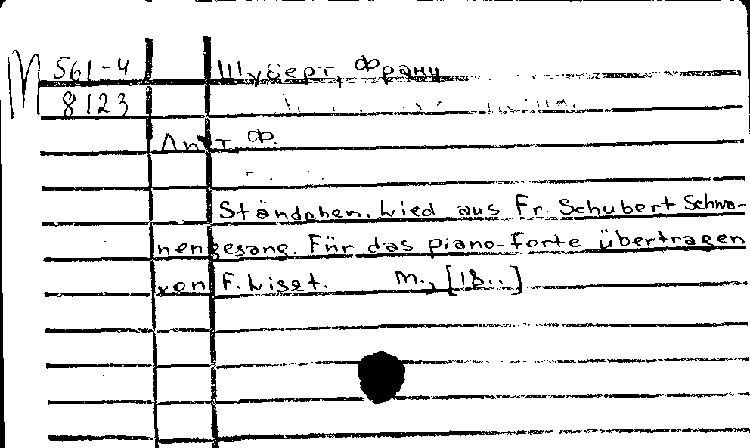 M 561-4 Шуберт, Франц
8123
Лист Ф.
Ständchen. Lied aus Fr. Schubert Schwa-
nengesang. Für das piano-forte übertragen
von F. Liszt. M., [18..]